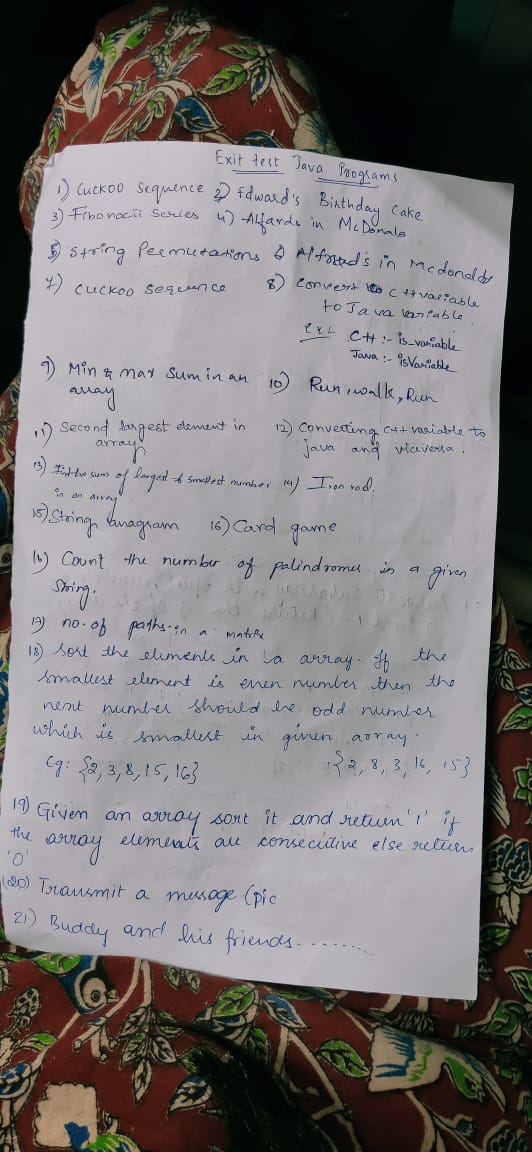 Exit test Java Programs
1) Cuckoo Sequence 2) Edward's Birthday Cake
3) Fibonacii Series 4) Alfards in McDonals
5) String Permutations 6) Alfored's in mcdonalds
7) cuckoo sequence 8) Convert to c++ variable
to Java variable
C++ :- is_variable
Java :- isVariable
9) Min & max sum in an array 10) Run, walk, Run
11) Second largest element in array 12) Converting c++ variable to java and viceversa.
13) Find the sum of largest & smallest number in an array 14) Iron rod.
15) String anagram 16) Card game
16) Count the number of palindromes in a given
String.
17) no. of paths in a matrix
18) Sort the elements in a array. If the
smallest element is even number then the
next number should be odd number
which is smallest in given array.
Eg: {2, 3, 8, 15, 16} {2, 8, 3, 16, 15}
19) Given an array sort it and return '1' if
the array elements are consecutive else return
'0'
20) Transmit a message (pic
21.) Buddy and his friends.........